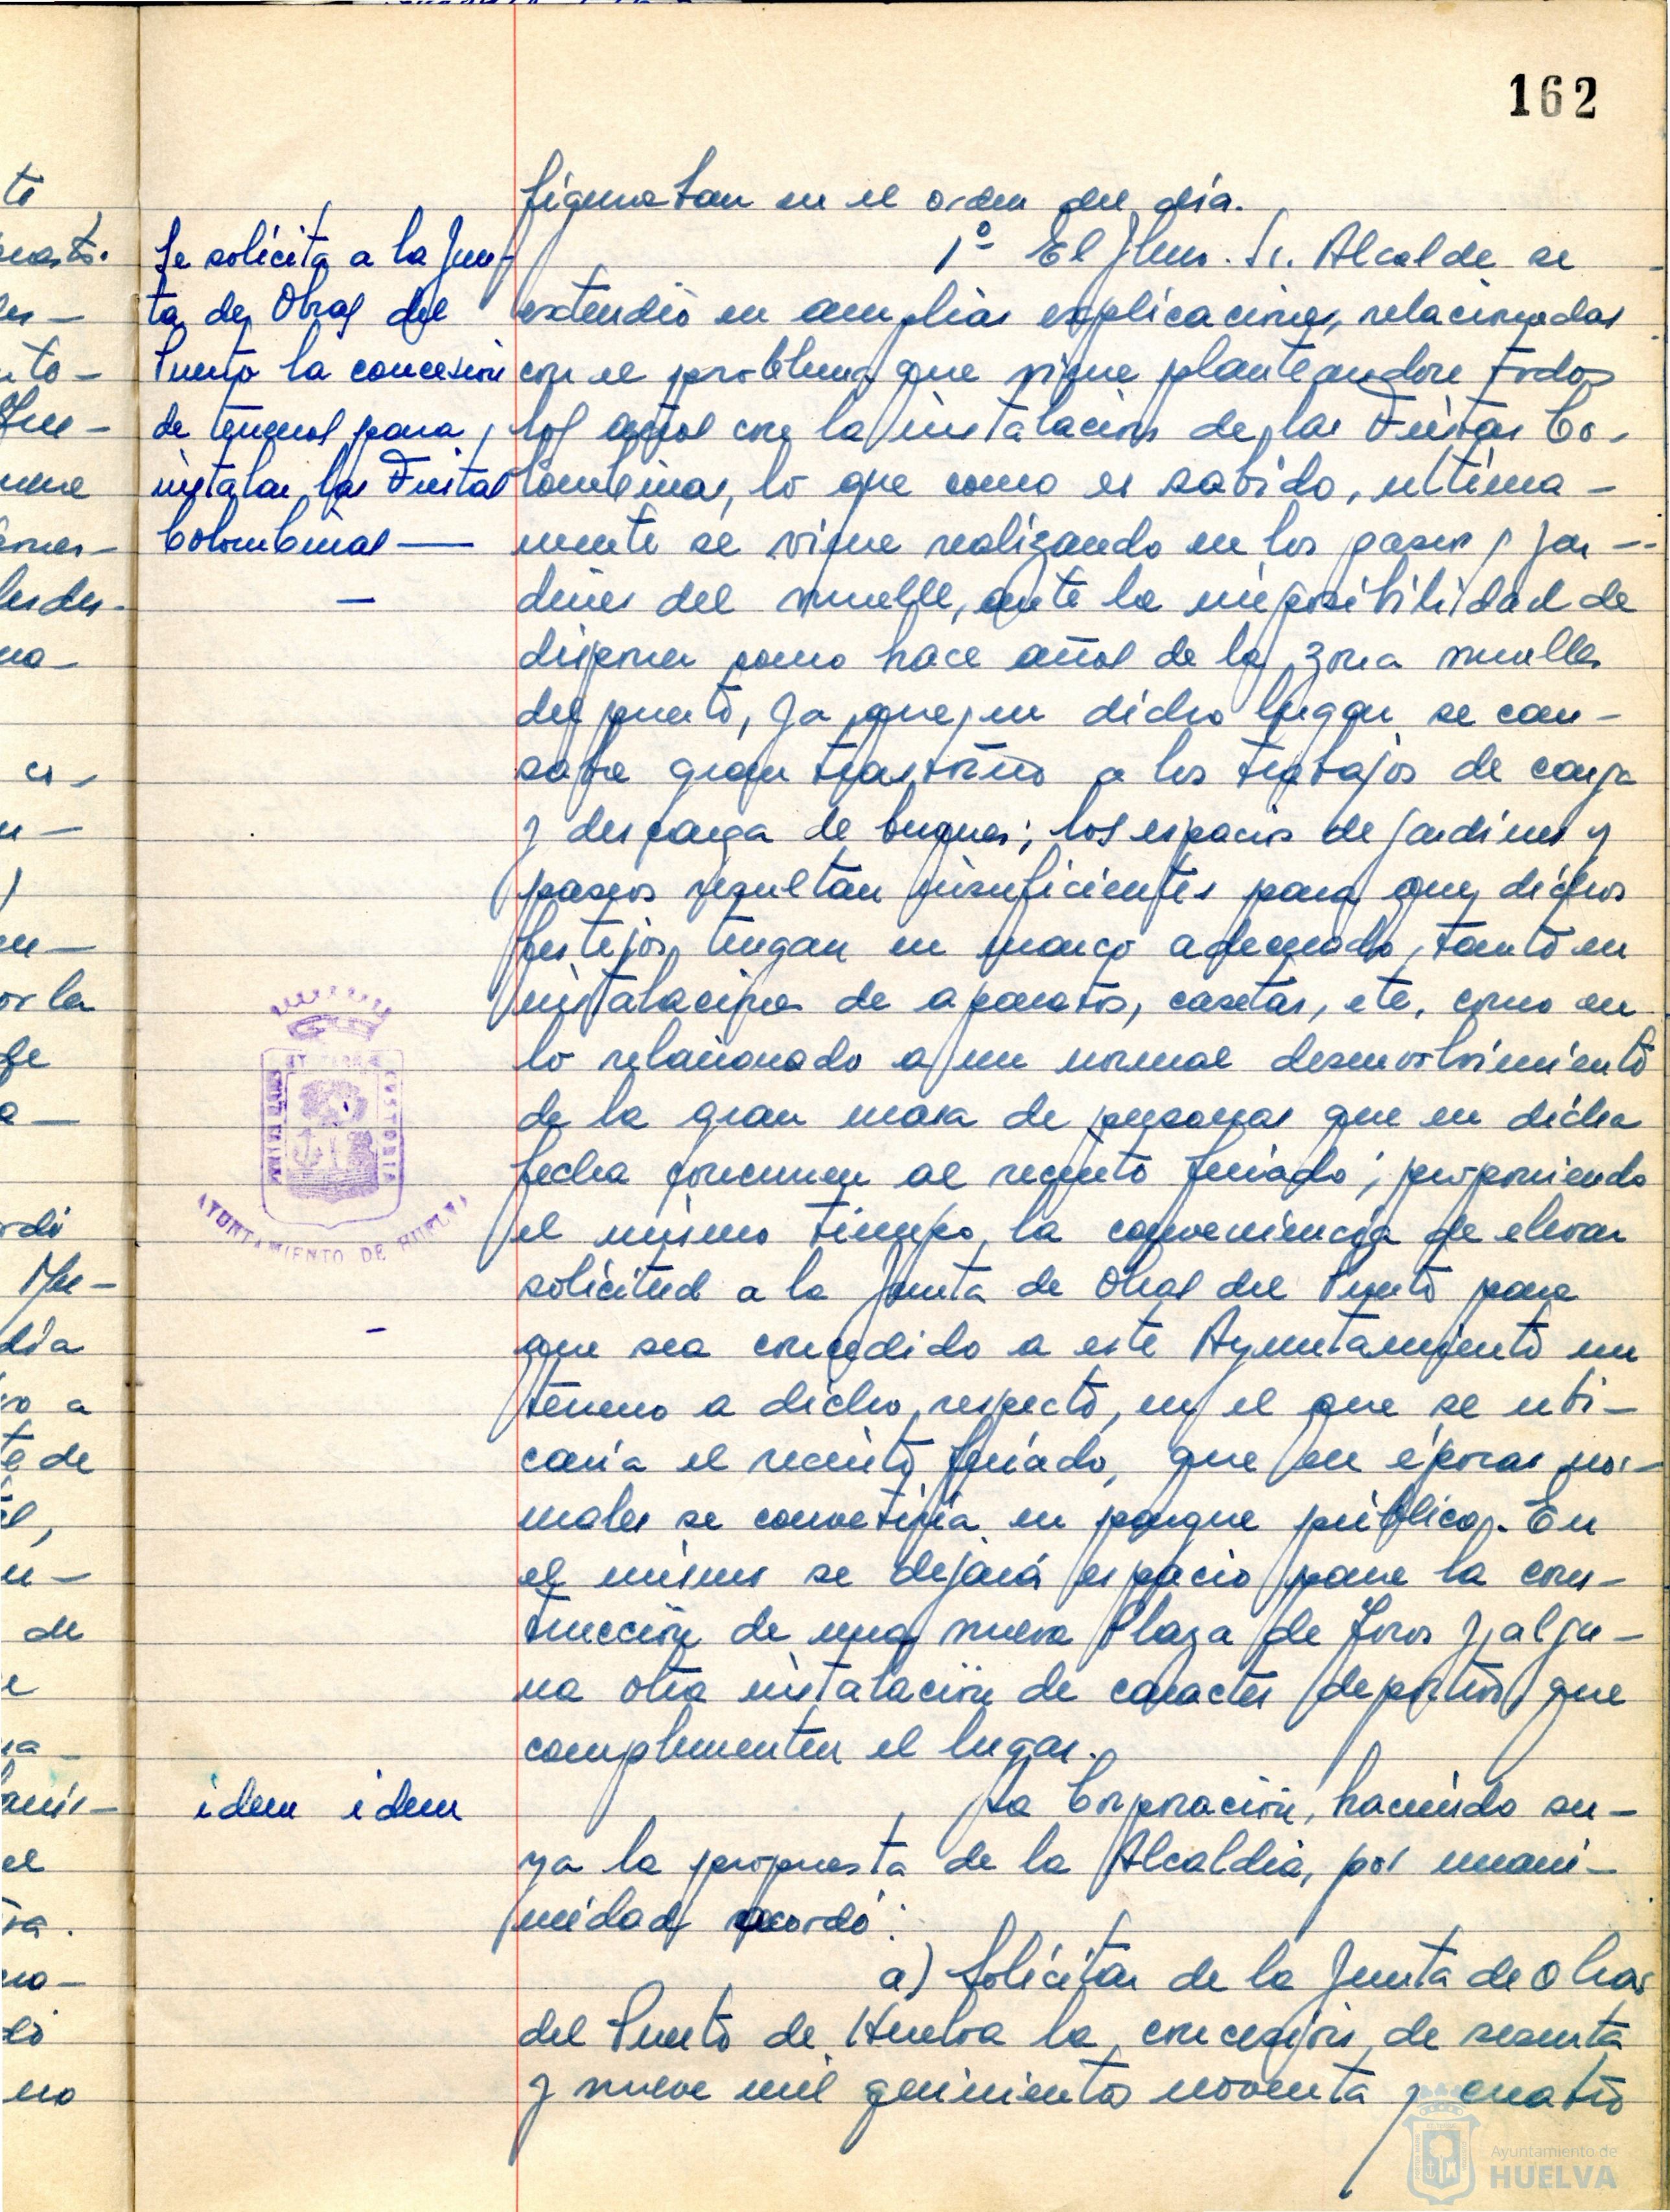 162
figuraban en el orden del día.
Se solicita a la Jun-
ta de Obras del
Puerto la concesión
de terrenos para
instalar las Fiestas
Colombinas —
1º El Ilmo. Sr. Alcalde se
extendió en amplias explicaciones, relacionadas
con el problema que viene planteandose todos
los años con la instalación de las Fiestas Co-
lombinas, lo que como es sabido, ultima-
mente se viene realizando en los paseos y jar-
dines del muelle, ante la imposibilidad de
disponer como hace años de la zona muelles
del puerto, ya que, en dicho lugar se cau-
saba gran trastorno a los trabajos de carga
y descarga de buques; los espacios de jardines y
paseos resultan insuficientes para que dichos
festejos tengan un marco adecuado, tanto en
instalaciones de aparatos, casetas, etc. como en
lo relacionado a un normal desenvolvimiento
de la gran masa de personas que en dicha
fecha concurren al recinto feriado; proponiendo
al mismo tiempo, la conveniencia de elevar
solicitud a la Junta de Obras del Puerto para
que sea concedido a este Ayuntamiento un
terreno a dicho respecto, en el que se ubi-
caria el recinto feriado, que en épocas nor-
males se convertiria en parque público. En
el mismo se dejará espacio para la cons-
trucción de una nueva Plaza de Toros y algu-
na otra instalación de caracter deportivo que
complementen el lugar.
idem idem
La Corporación, haciendo su-
ya la propuesta de la Alcaldia, por unani-
midad acordó:
a) Solicitar de la Junta de Obras
del Puerto de Huelva la concesión de sesenta
y nueve mil quinientos noventa y cuatro
AYUNTAMIENTO DE HUELVA
Ayuntamiento de
HUELVA